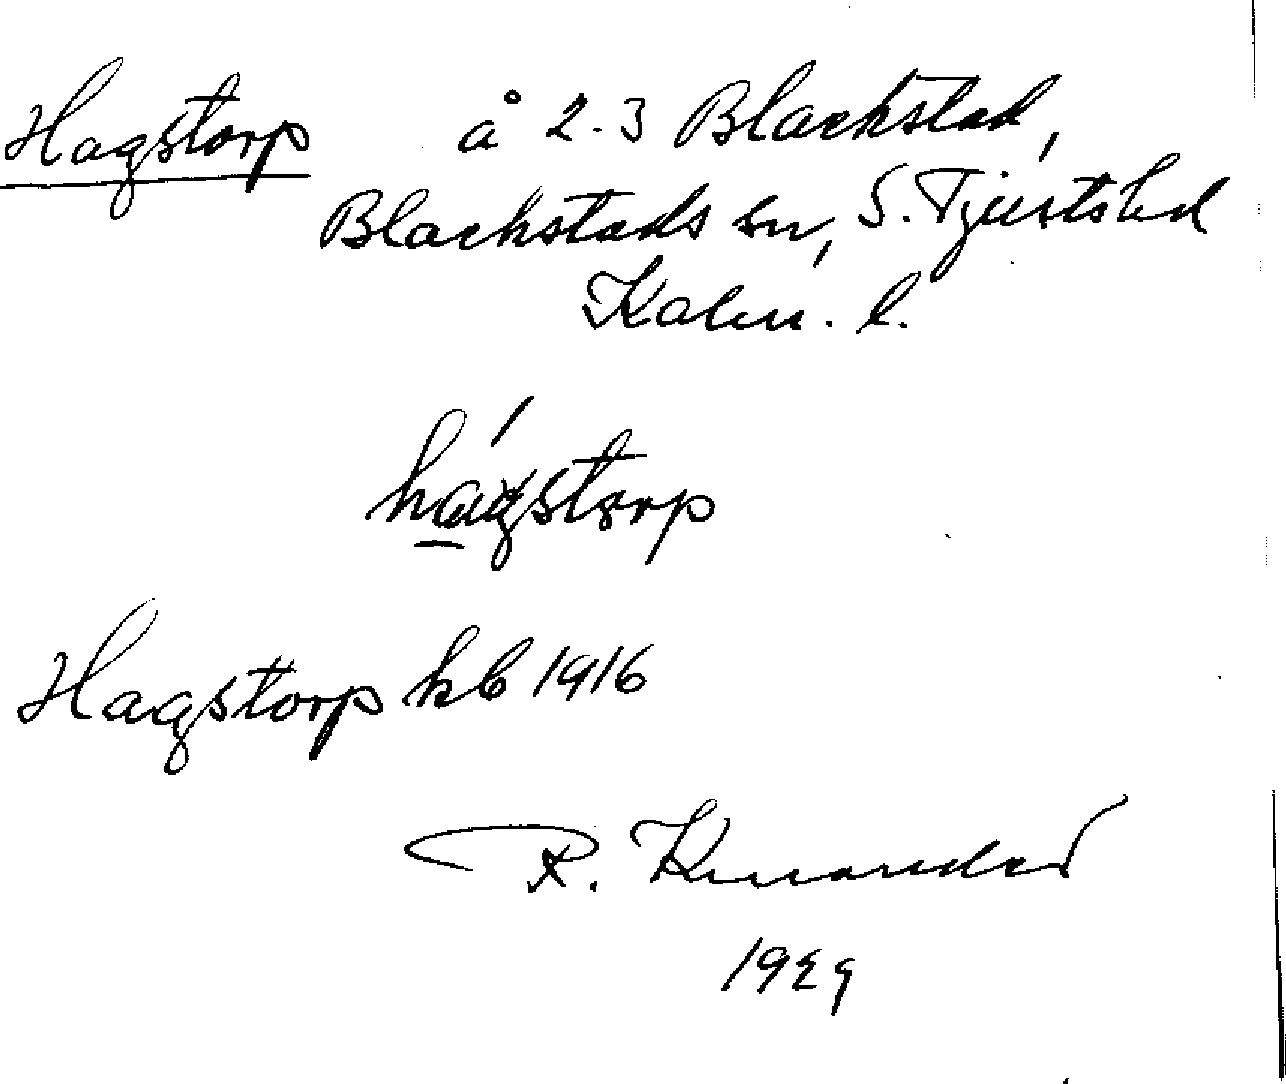 Hagstorp å 2-3 Blackstad,
Blackstads sn, S. Tjústs hd
Kalm. l.
hágstorp
Hagstorp kb 1916
R.
1929